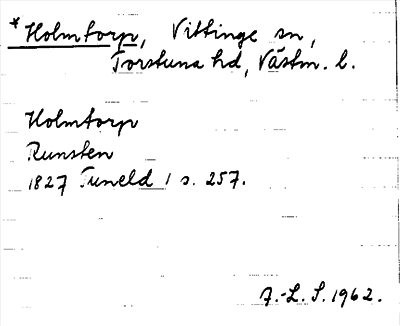 * Holmtorp, Vittinge sn,
Torstuna hd, Västm. l.
Holmtorp
Runsten
1827 Tuneld 1 s. 257.
J.-L. S. 1962.